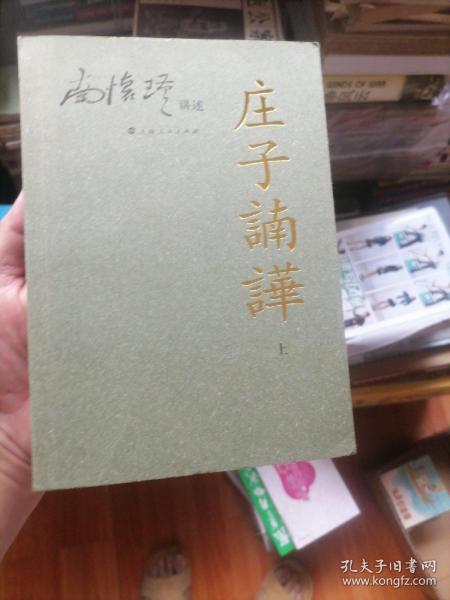 南懷瑾 讲述
上海人民出版社
庄子諵譁
上
WINDS OF WAR
孔夫子旧书网
www.kongfz.com